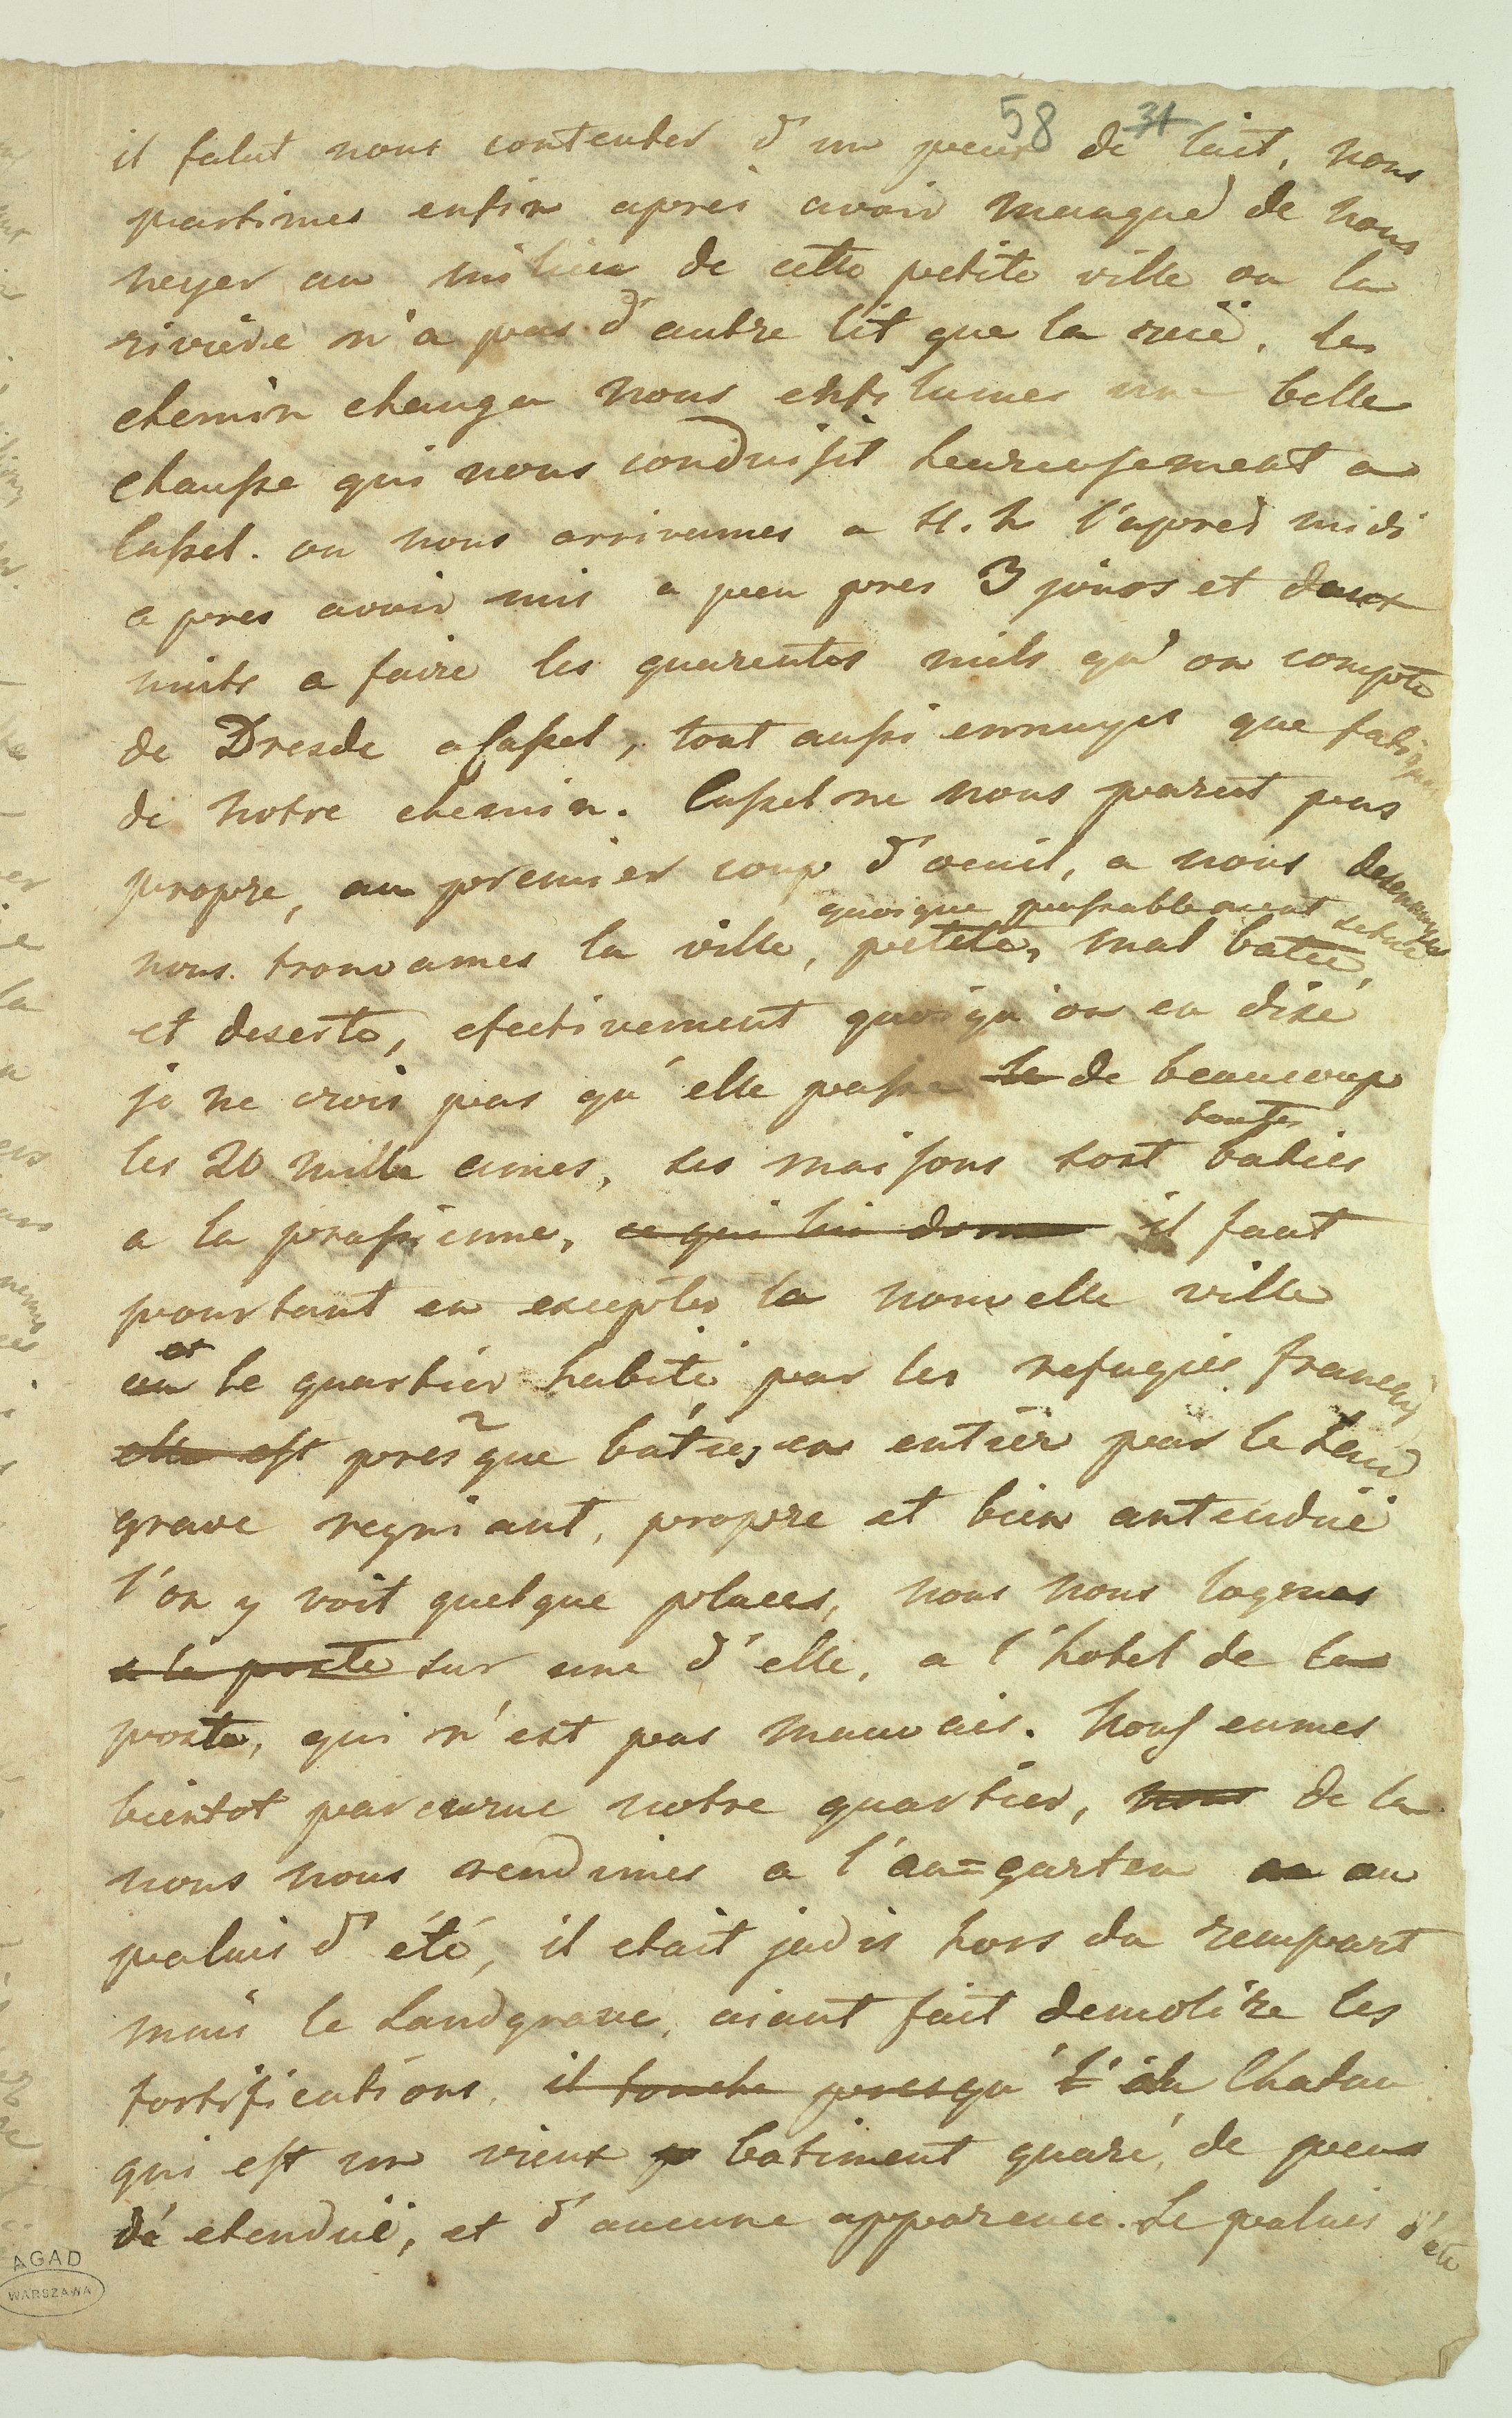 58 31
il falut nous contenter d'un peu de lait, nous
partimes enfin après avoir manqué de nous
neyer au milieu de cette petite ville ou la
riviere n'a pas d'autre lit que la ruë, le
chemin changea nous enfilames une belle
chaussee qui nous conduisit heureusement a
Cassel. ou nous arrivames a 4. h l'après midi
apres avoir mis a peu pres 3 jours et deux
nuits a faire les quarentes mils qu'on compte
de Dresde a Cassel, tout aussi ennuyes que fatigues
de notre chemin. Cassel ne nous parut pas
propre, au premier coup d'oeuil, a nous desennuyer
quoique passablement
nous trouvames la ville, petite, mal batie,
et deserte, efectivement quoiqu'on en dise
je ne crois pas qu'elle passe le de beaucoup
toutes
les 20 mille ames, ses maisons sont baties
a la prussienne, ce qui lui donne il faut
pourtant en excepter la nouvelle ville
et
ou le quartier habité par les refugiés français
elle est presque bâties en entier par le Land
grave regniant, propre et bien entenduë
l'on y voit quelque places, nous nous logemes
a la poste sur une d'elle, a l'hotel de la
poste, qui n'est pas mauvais. Nous eumes
bientot parcourue notre quartier, nous de la
nous nous rendimes a l'au=garten au
palais d'été, il etait jadis hors du rempart
mais le Landgrave, aiant fait demolire les
fortifications, il touche presqu'à Chateau
qui est un vieux batiment quaré, de peu
dé etenduë, et d'aucune apparence. Le palais d'été
AGAD
WARSZAWA